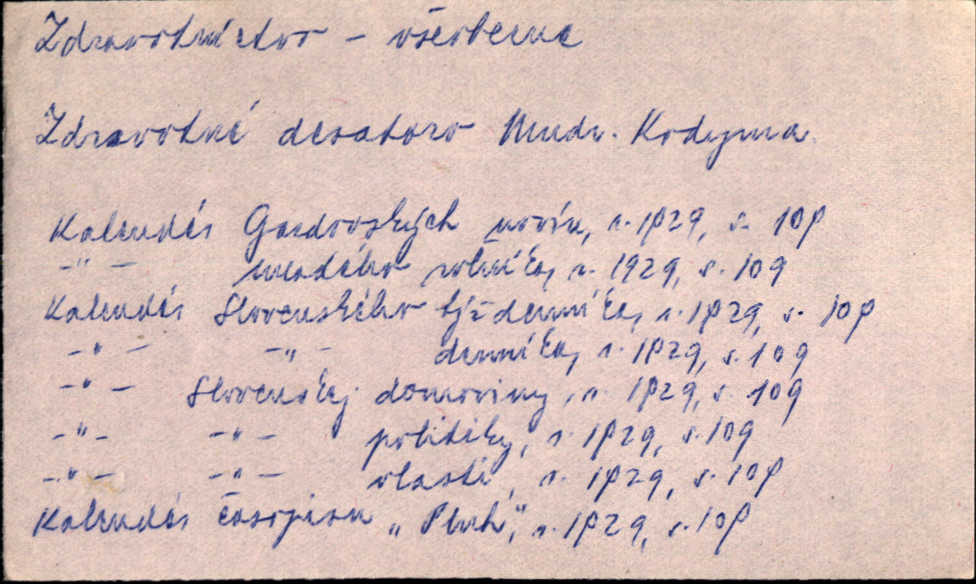 Zdravotníctvo - všeobecne
Zdravotné desatoro Mudr. Kodyma
Kalendár Gazdovských novín, r. 1929, s. 109
-"- mladého roľníka, r. 1929, s. 109
Kalendár Slovenského týždenníka, r. 1929, s. 109
-"- -"- denníka, r. 1929, s. 109
-"- Slovenskej domoviny, r. 1929, s. 109
-"- -"- politiky, r. 1929, s. 109
-"- -"- vlasti, r. 1929, s. 109
Kalendár časopisu „Pluh“, r. 1929, s. 109